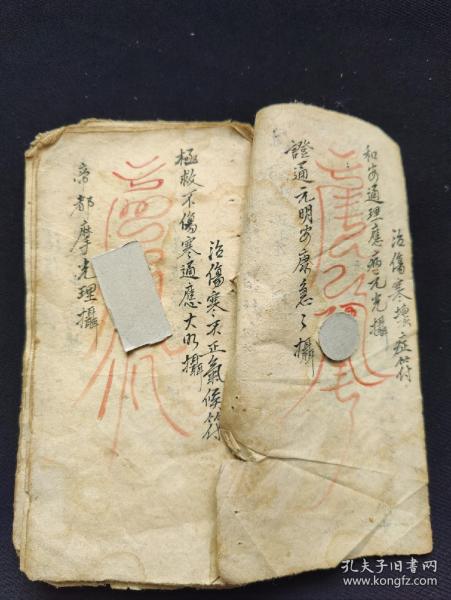 治傷寒壞症符
和安通理應病元光攝
證通元明安康急々攝
治傷寒不正氣候符
極救不傷寒通應大明攝
帝都摩光理攝
孔夫子旧书网
www.kongfz.com